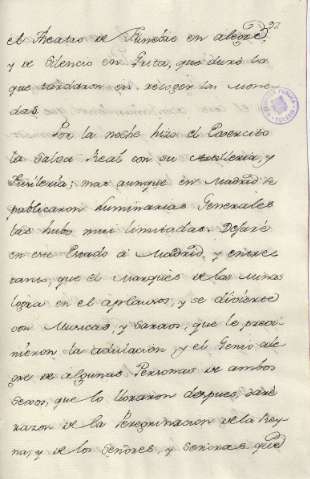 el Theatro de Funebre en alegre,
y de Silencio en Grita, que duró lo
que tardaron en recoger las Mone-
das.
Por la noche hizo el Exercito
la Salva Real con su Artilleria, y
Fusileria; mas aunque en Madrid se
publicaron Luminarias Generales
las hubo mui limitadas. Dejaré
en este Estado á Madrid, y entre
tanto, que el Marques de las Minas
logra en el aplauso, y se divierte
con Musicas, y Saraos, que le previ-
nieron la adulacion, y el Genio ale-
gre de algunas Personas de ambos
Sexos, que lo lloraron despues, daré
razon de la Peregrinacion de la Rey-
na, y de los Señores, y Señoras que